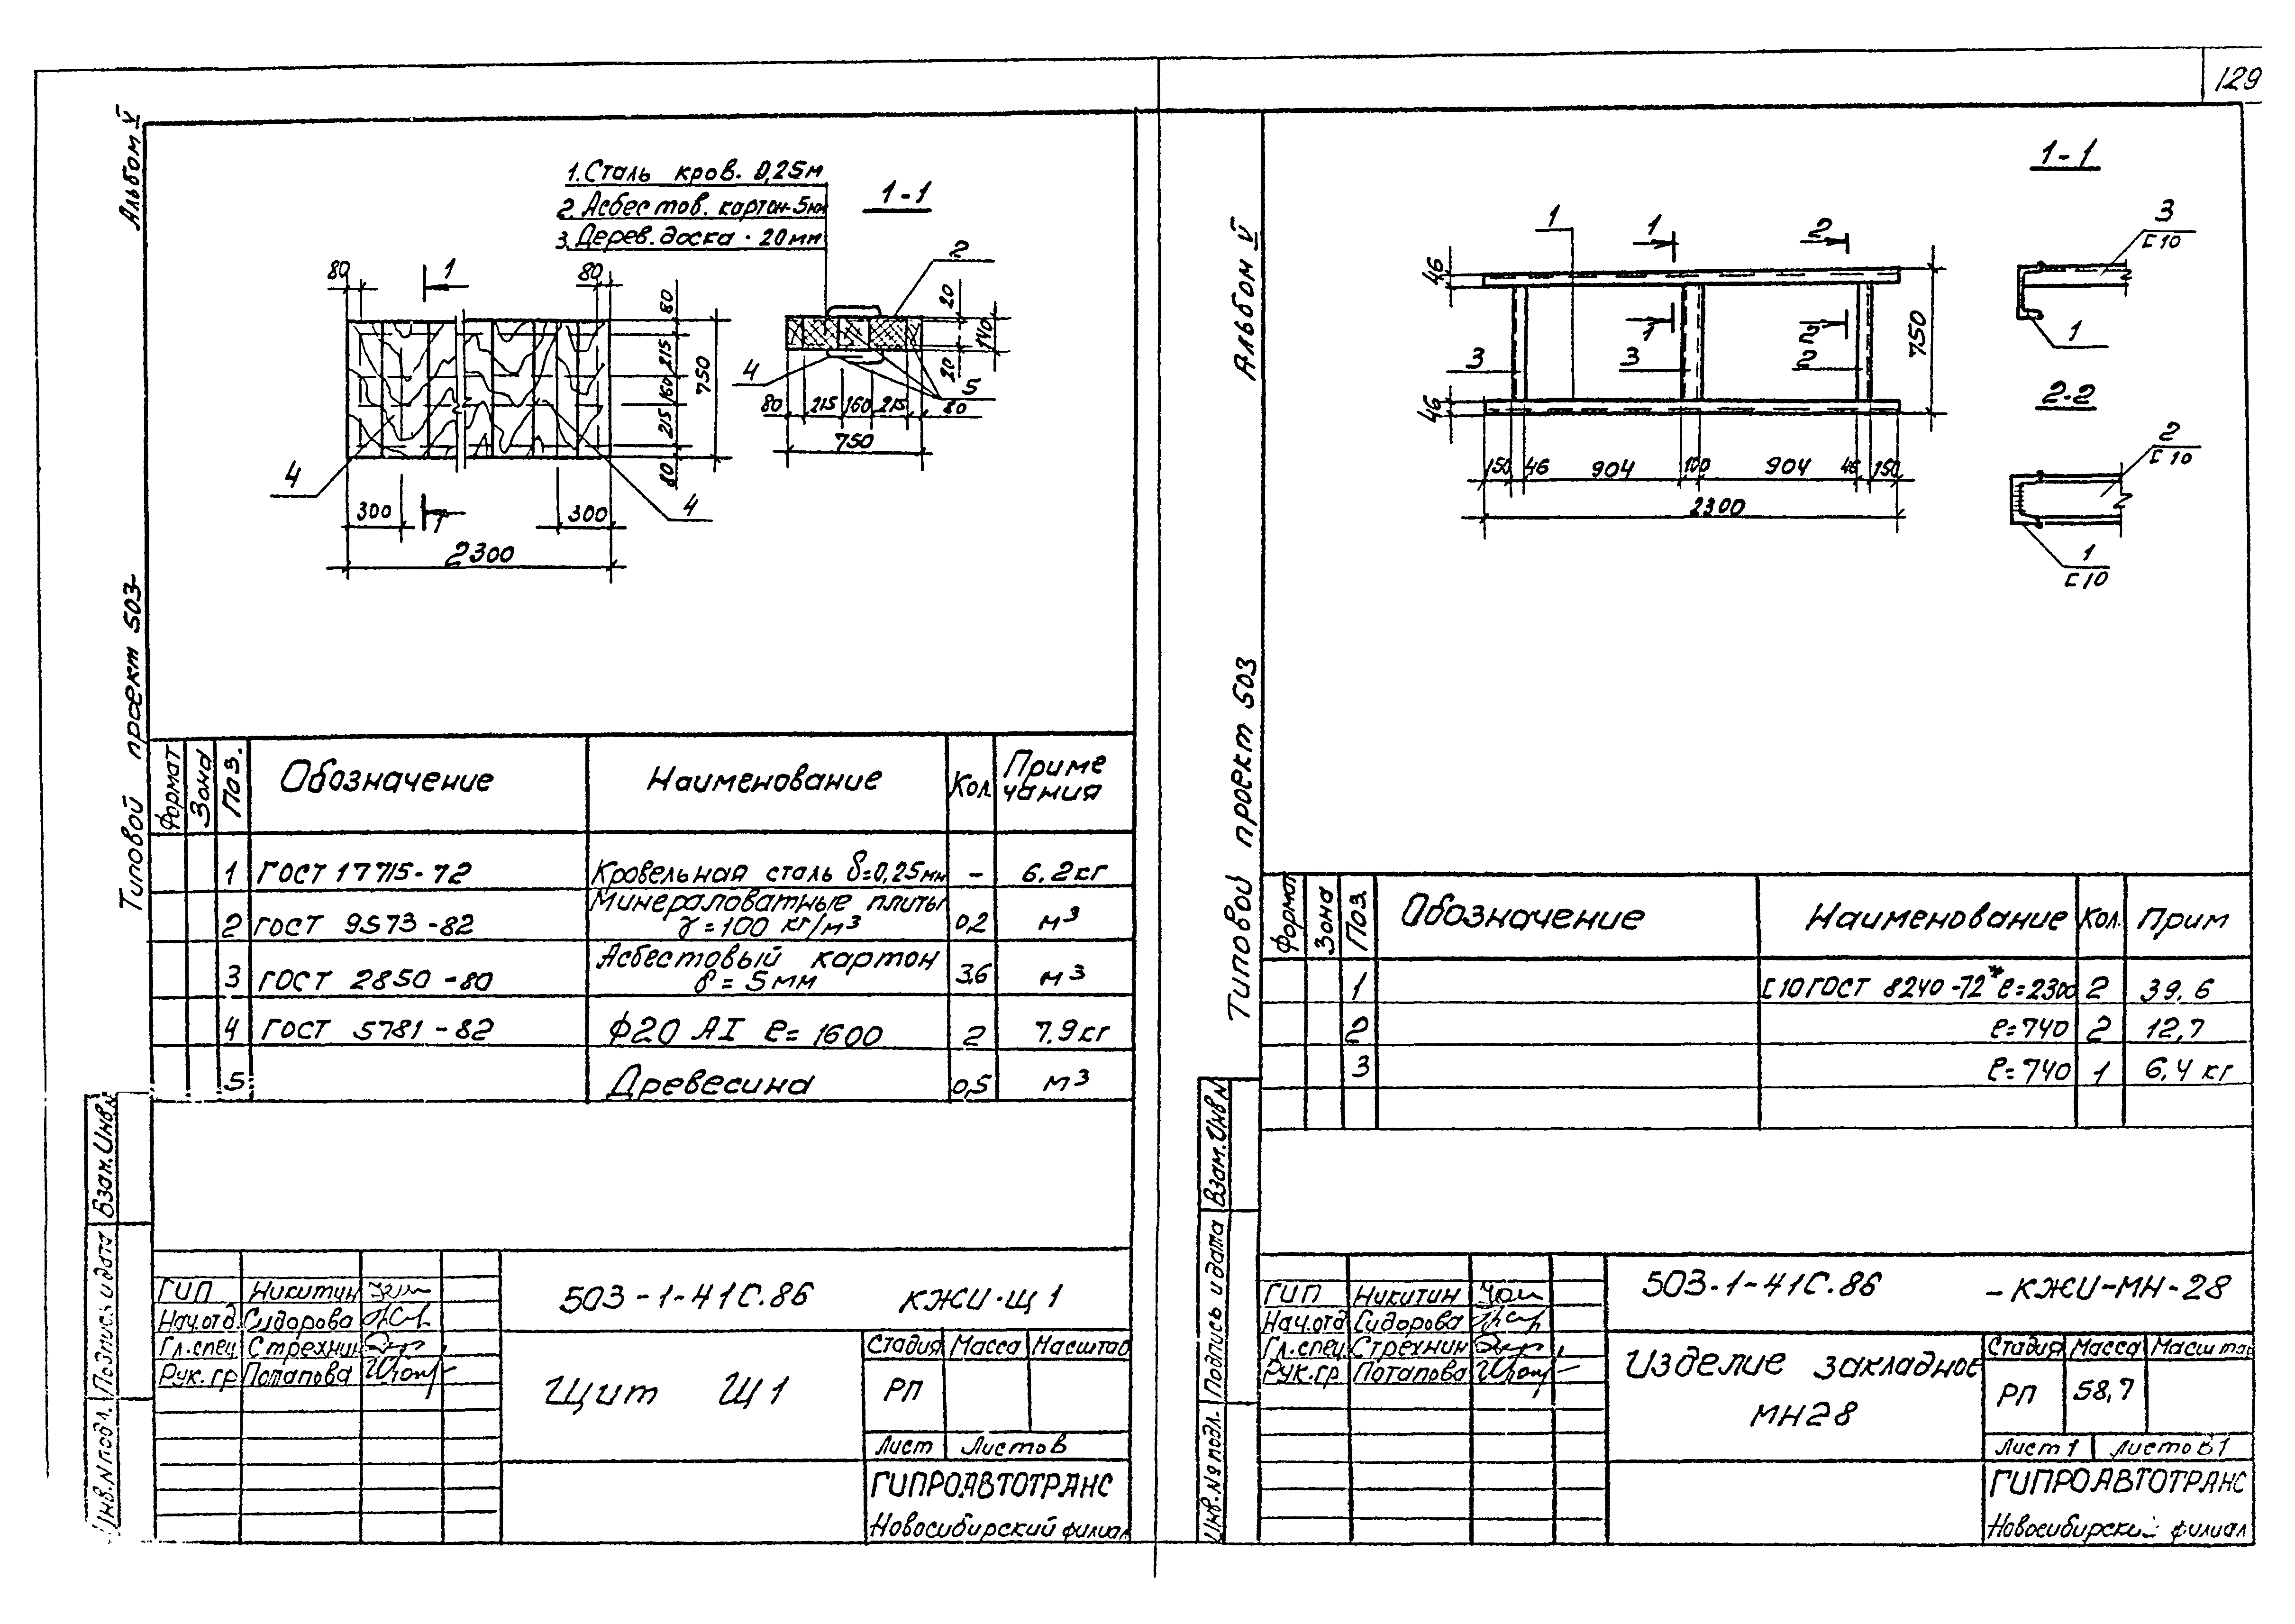 129
Альбом V
Типовой проект 503-
1. Сталь кров. 0,25м
2. Асбестов. картон-5мм
3. Дерев. доска · 20мм
1-1
80
1
80
80
215
160
215
80
750
4
4
300
1
300
2300
2
20
140
20
4
5
80 215 160 215 80
750
Формат Зона Поз. Обозначение Наименование Кол. Приме
чания
1 ГОСТ 17715-72 Кровельная сталь δ=0,25мм - 6.2кг
2 ГОСТ 9573-82 Минераловатные плиты
γ=100 кг/м³ 0,2 м³
3 ГОСТ 2850-80 Асбестовый картон
δ=5мм 3,6 м³
4 ГОСТ 5781-82 ф20 АI ℓ=1600 2 7.9кг
5 Древесина 0,5 м³
Инв.N подл. Подпись и дата Взам.Инв.N
ГИП Никитин
Нач.отд. Сидорова
Гл.спец Стрехнин
Рук.гр Потапова
503-1-41С.86 КЖИ·Щ1
Щит Щ1
Стадия Масса Масштаб
РП
Лист Листов
ГИПРОАВТОТРАНС
Новосибирский филиал
Альбом V
Типовой проект 503
1-1
1
1
2
46
46
3
1
3
2
2
750
150 46 904 100 904 46 150
2300
3
С10
1
2-2
2
С10
1
С10
Формат Зона Поз. Обозначение Наименование Кол. Прим
1 С10 ГОСТ 8240-72* ℓ=2300 2 39,6
2 ℓ=740 2 12,7
3 ℓ=740 1 6,4 кг
Инв.№ подл. Подпись и дата Взам.Инв N
ГИП Никитин
Нач.отд Сидорова
Гл.спец. Стрехнин
Рук.гр Потапова
503-1-41С.86 -КЖИ-МН-28
Изделие закладное
МН28
Стадия Масса Масштаб
РП 58,7
Лист 1 Листов 1
ГИПРОАВТОТРАНС
Новосибирский филиал